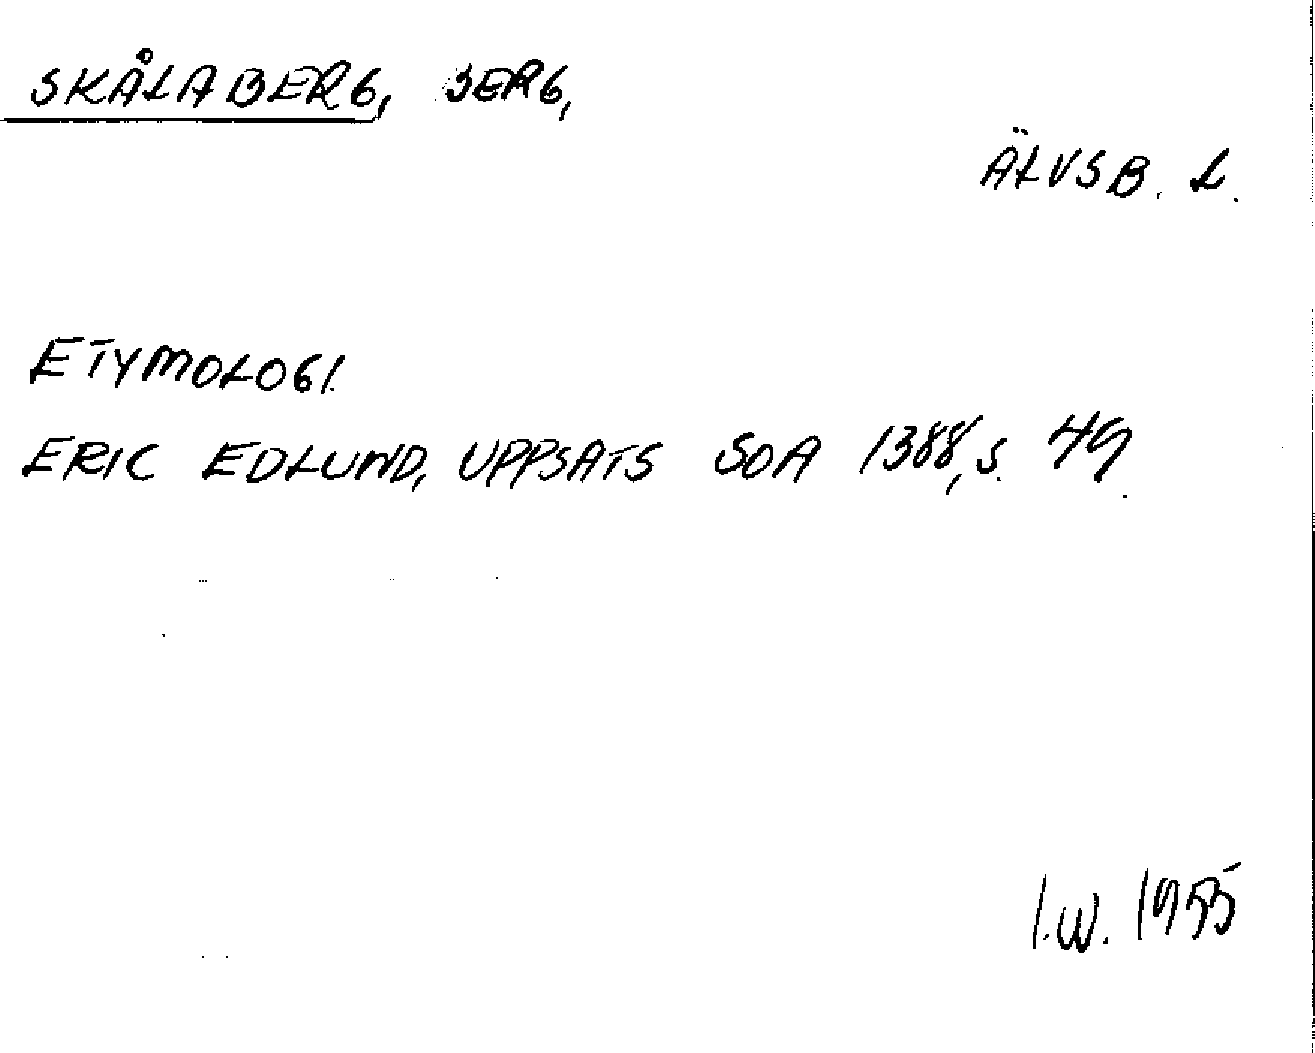 SKÅLABERG, BERG,
ÄLVSB. L.
ETYMOLOGI.
ERIC EDLUND, UPPSATS SOA 1388, S. 49.
I.W. 1955